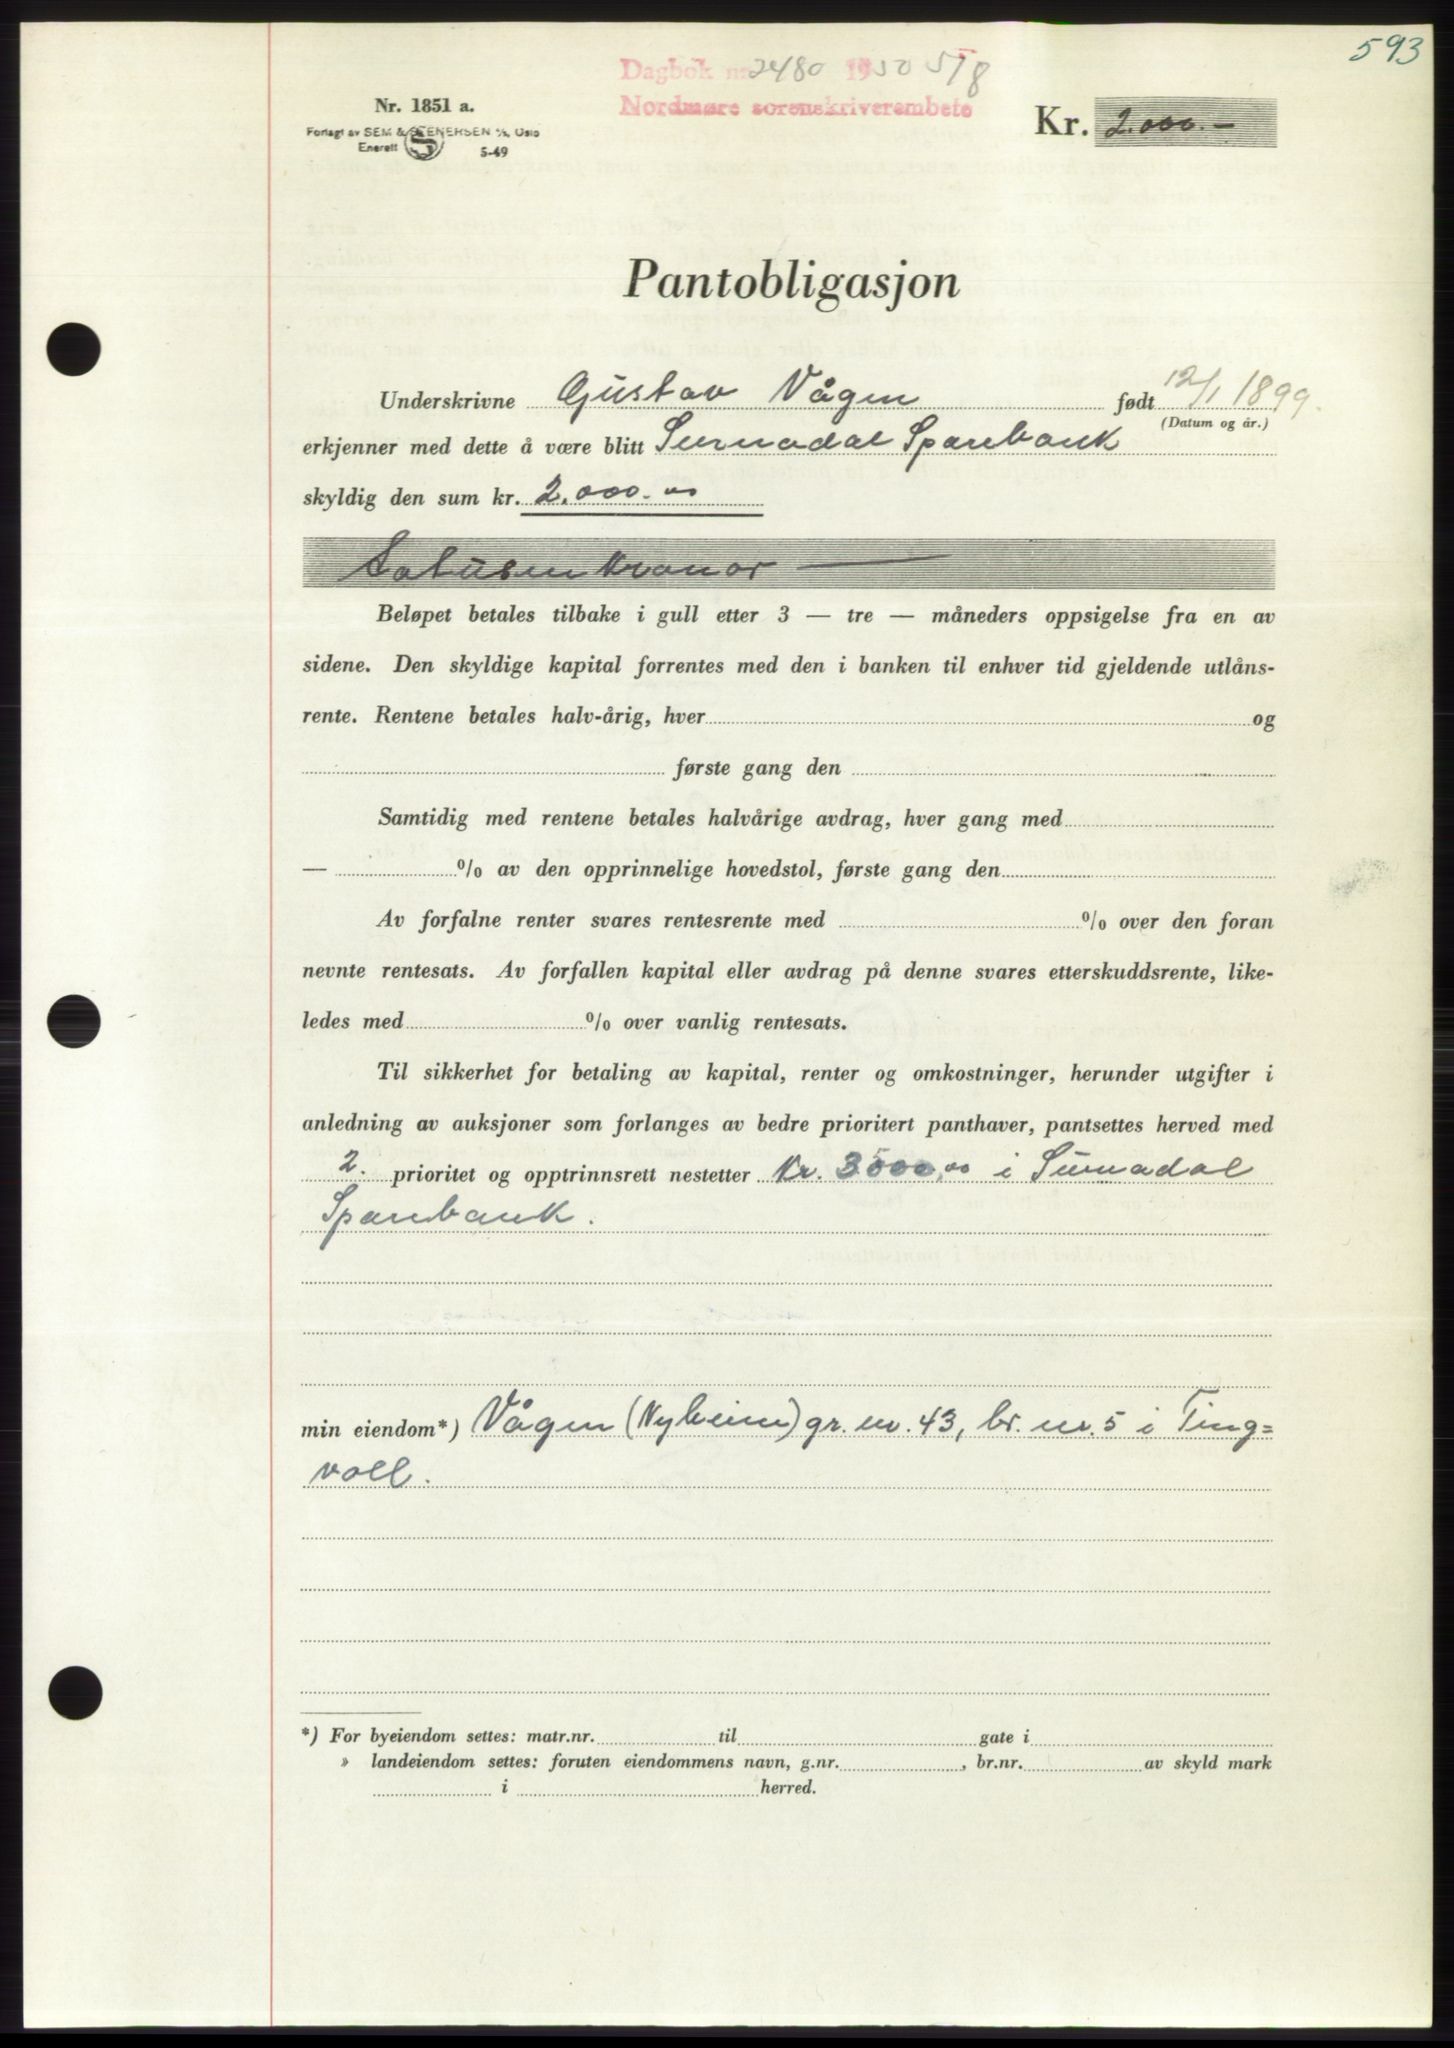 593
Dagbok nr. 2480 1950 5/8
Nordmøre sorenskriverembete
Nr. 1851 a.
Forlagt av SEM & STENERSEN A/S, Oslo
Enerett 5-49
Kr. 2.000.-
Pantobligasjon
Underskrivne Gustav Vågen født 12/1 1899.
(Datum og år.)
erkjenner med dette å være blitt Surnadal Sparebank
skyldig den sum kr. 2.000.00
Totusen kronor —
Beløpet betales tilbake i gull etter 3 — tre — måneders oppsigelse fra en av
sidene. Den skyldige kapital forrentes med den i banken til enhver tid gjeldende utlåns-
rente. Rentene betales halv-årig, hver og
første gang den
Samtidig med rentene betales halvårige avdrag, hver gang med
— % av den opprinnelige hovedstol, første gang den
Av forfalne renter svares rentesrente med % over den foran
nevnte rentesats. Av forfallen kapital eller avdrag på denne svares etterskuddsrente, like-
ledes med % over vanlig rentesats.
Til sikkerhet for betaling av kapital, renter og omkostninger, herunder utgifter i
anledning av auksjoner som forlanges av bedre prioritert panthaver, pantsettes herved med
2. prioritet og opptrinnsrett nestetter Kr. 3500,00 i Surnadal
Sparebank.
min eiendom*) Vågen (Nyheim) gr. nr. 43, br. nr. 5 i Ting=
voll.
*) For byeiendom settes: matr.nr. til gate i
» landeiendom settes: foruten eiendommens navn, g.nr. , br.nr. av skyld mark
i herred.